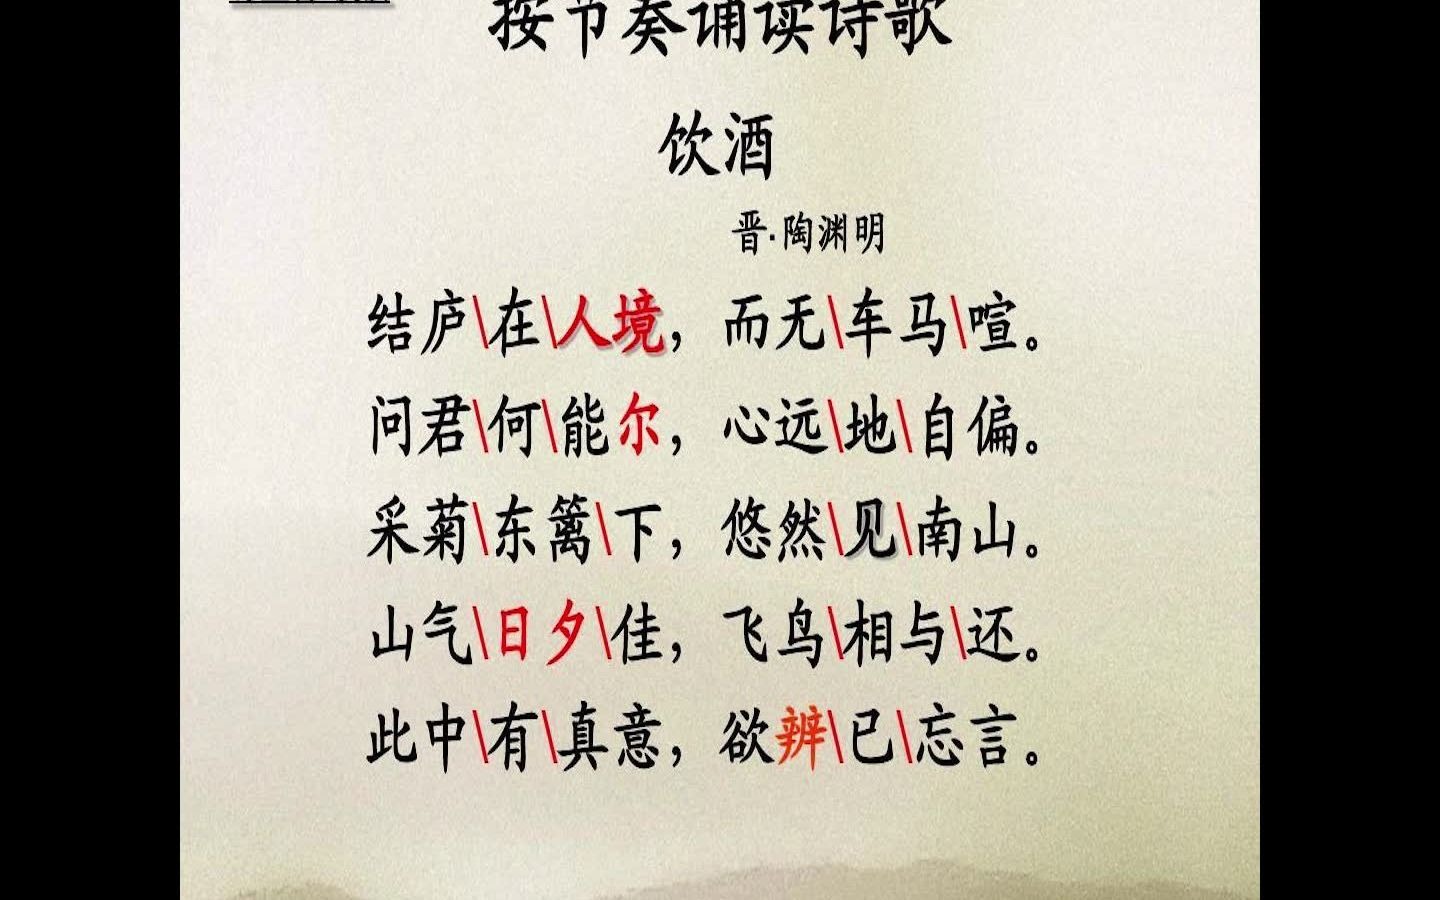 按节奏诵读诗歌
饮酒
晋·陶渊明
结庐\在\人境，而无\车马\喧。
问君\何\能尔，心远\地\自偏。
采菊\东篱\下，悠然\见\南山。
山气\日夕\佳，飞鸟\相与\还。
此中\有\真意，欲辨\已\忘言。